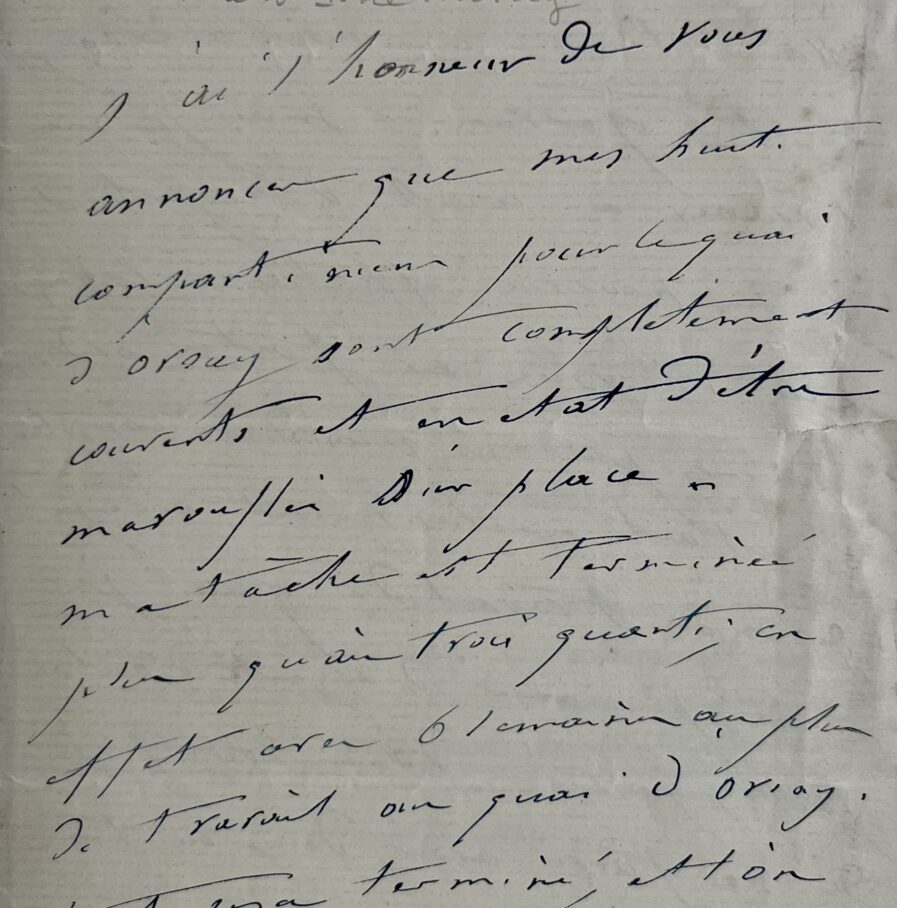 j'ai l'honneur de vous
annoncer que mes huit
compartiments pour le quai
d'orsay sont completement
couverts et en etat d'être
marouflés sur place.
ma tâche est terminée
plus qu'au trois quarts; en
effet avec 6 semaines au plus
de travail au quai d'orsay.
sera terminé, et l'on